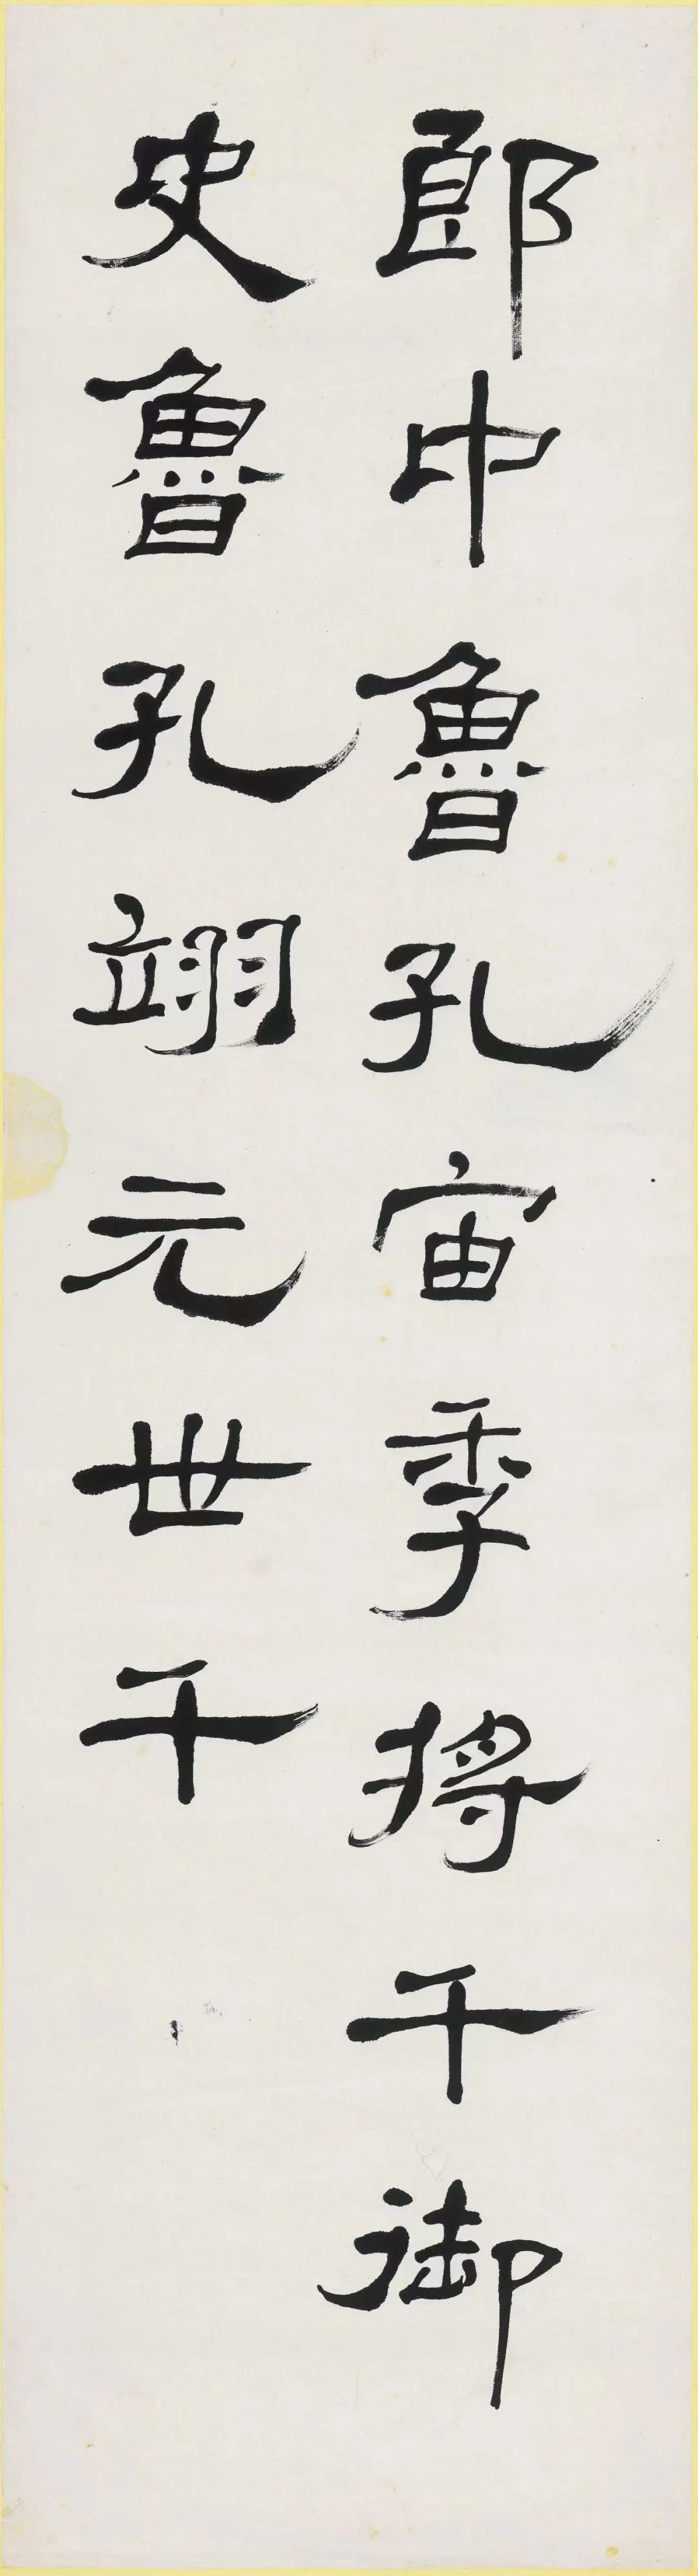 郎中魯孔宙季将千御
史魯孔翊元世千